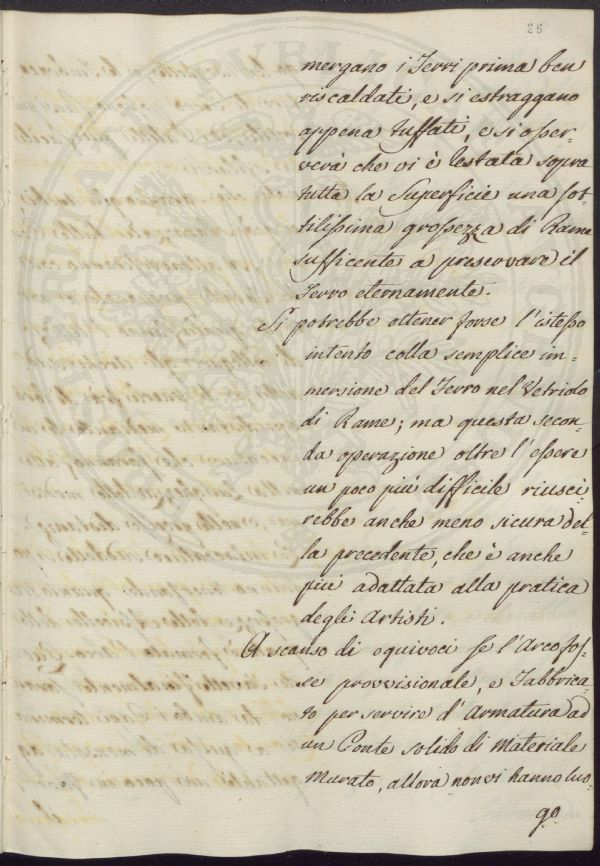 26
mergano i Ferri prima ben
riscaldati, e si estraggano
appena tuffati, e si osser-
verà che vi è restata sopra
tutta la Superficie una sot-
tilissima grossezza di Rame
sufficente a preservare il
Ferro eternamente.
Si potrebbe ottener forse l'istesso
intento colla semplice im-
mersione del Ferro nel Vetriolo
di Rame; ma questa secon-
da operazione oltre l'essere
un poco piú difficile riusci-
rebbe anche meno sicura del-
la precedente, che è anche
piú adattata alla pratica
degli Artisti.
A scanso di equivoci se l'Arco fos-
se provvisionale, e Fabbrica-
to per servire d'Armatura ad
un Ponte solido di Materiale
Murato, allora non vi hanno luo-
go